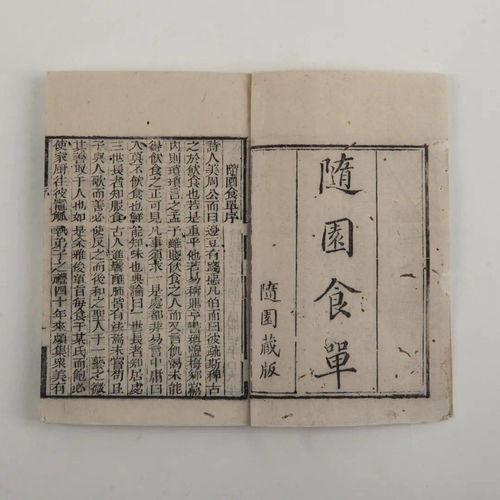 隨園食單
隨園藏版
隨園食單序
詩人美周公而曰籩豆有踐惡凡伯而曰彼疏斯稗古
之於飲食也若是重乎他若易稱鼎亨書稱鹽梅鄉黨
內則瑣瑣言之孟子雖賤飲食之人而又言飢渴未能
得飲食之正可見凡事須求一是處都非易言中庸曰
人莫不飲食也鮮能知味也典論曰一世長者知居處
三世長者知服食古人進鬐離肺皆有法焉未嘗苟且
子與人歌而善必使反之而後和之聖人于一藝之微
其善取于人也如是余雅慕此旨每食于某氏而飽必
使家廚往彼竈觚執弟子之禮四十年來頗集眾美有
序